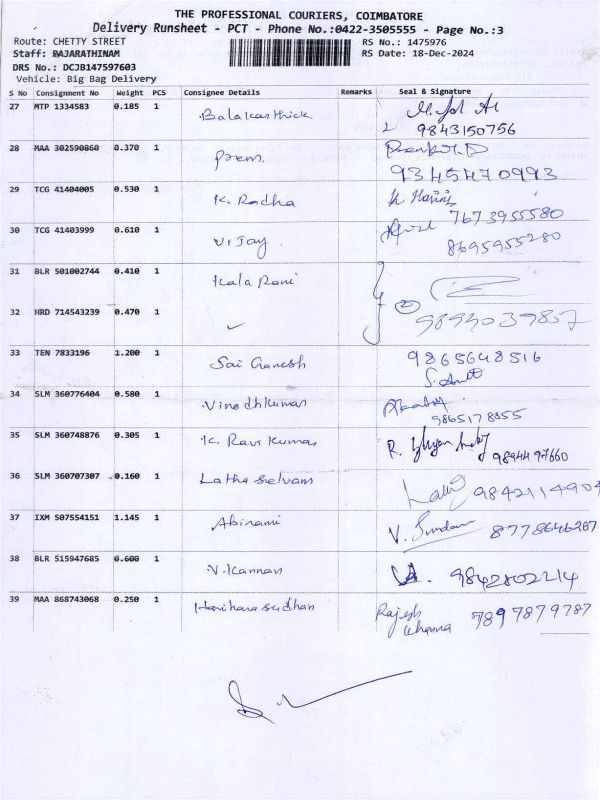 THE PROFESSIONAL COURIERS, COIMBATORE
Delivery Runsheet - PCT - Phone No.:0422-3505555 - Page No.:3
Route: CHETTY STREET RS No.: 1475976
Staff: RAJARATHINAM RS Date: 18-Dec-2024
DRS No.: DCJB147597603
Vehicle: Big Bag Delivery
S No Consignment No Weight PCS Consignee Details Remarks Seal & Signature
27 MTP 1334583 0.185 1 Balakarthick
9843150756
28 MAA 302590860 0.370 1 prem.
9345470993
29 TCG 41404005 0.530 1 K. Radha K Haris
7673955580
30 TCG 41403999 0.610 1 Vijay.
8695955280
31 BLR 501002744 0.410 1 Kala Rani
32 HRD 714543239 0.470 1 ✓ 2
9894039857
33 TEN 7833196 1.200 1 Sai Ganesh 9865648516
34 SLM 360776404 0.580 1 Vinodhkumar
9865178855
35 SLM 360748876 0.305 1 K. Ravi Kumar R.
9894497660
36 SLM 360707307 0.160 1 Latha selvam 9842114904
37 IXM 507554151 1.145 1 Abirami V. Sundar 8778646267
38 BLR 515947685 0.600 1 V. Kannan 9842802214
39 MAA 868743068 0.250 1 Harihara sudhan Rajesh 7897879787
Khanna